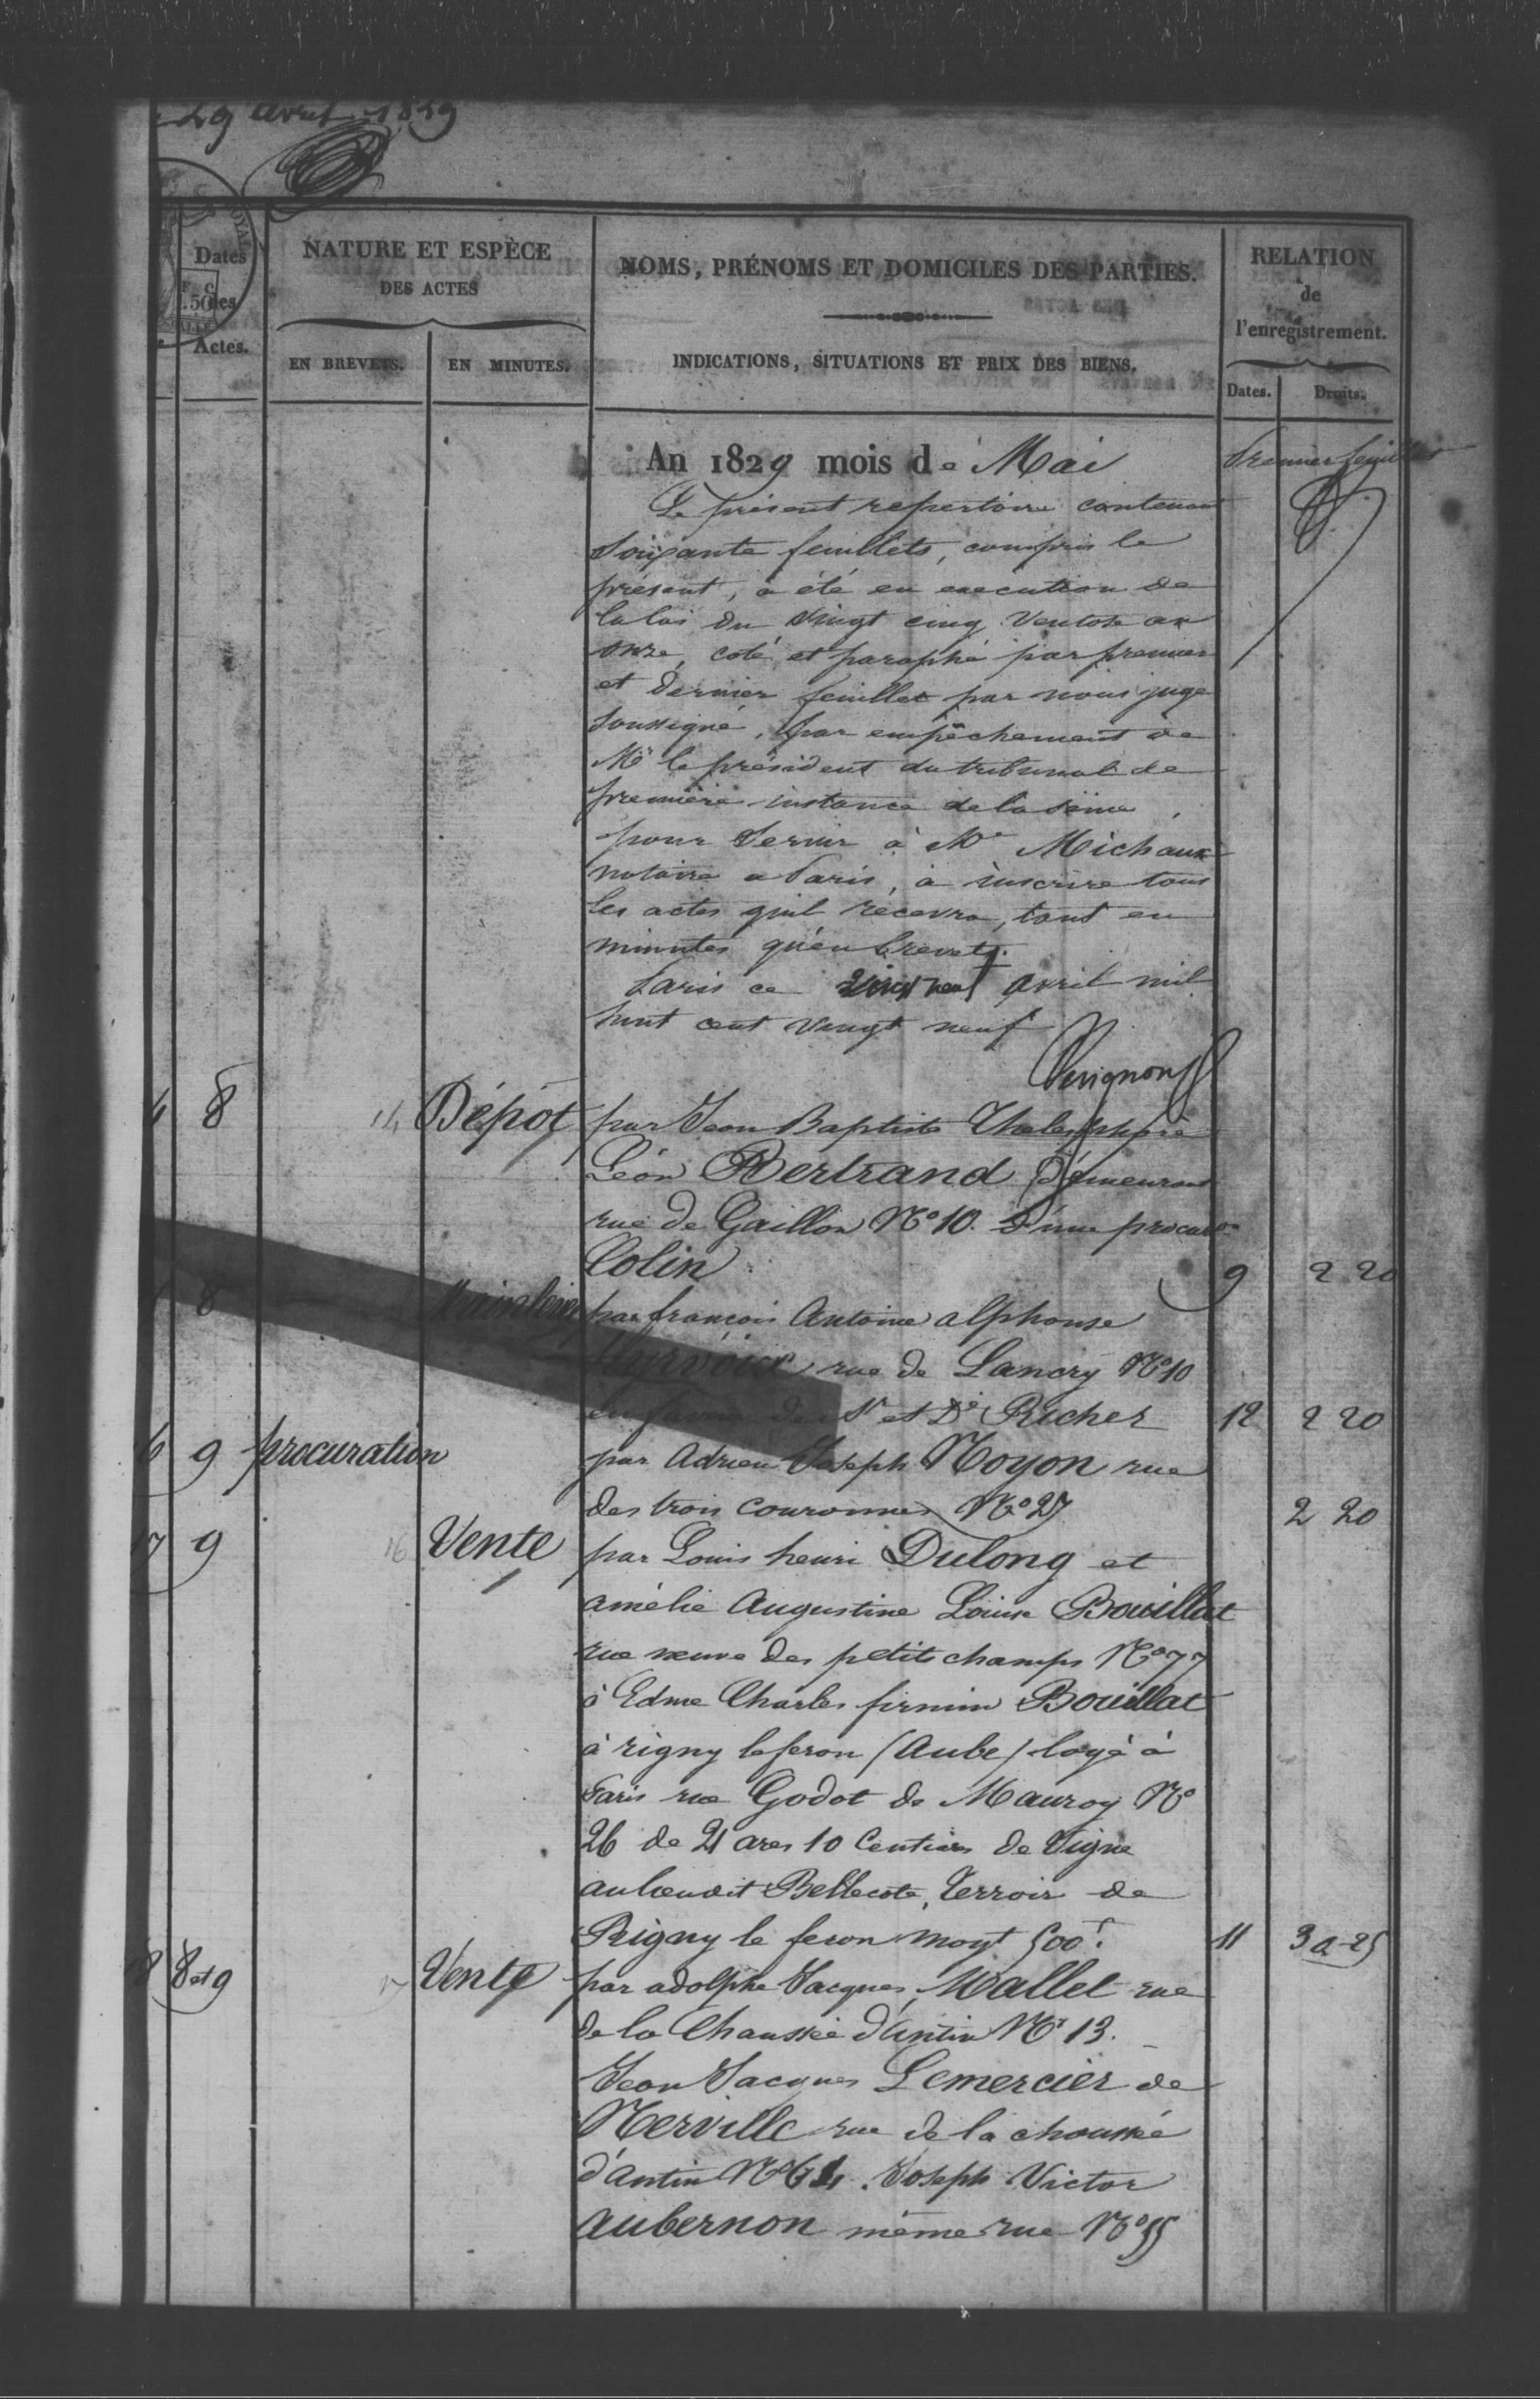 29 avril 1829
Dates des Actes.
NATURE ET ESPÈCE
DES ACTES
EN BREVETS.
EN MINUTES.
NOMS, PRÉNOMS ET DOMICILES DES PARTIES.
INDICATIONS, SITUATIONS ET PRIX DES BIENS.
RELATION
de
l'enregistrement.
Dates.
Droits.
An 1829 mois de Mai
Premier feuillet
Le présent repertoire contenant
Soixante feuillets, compris le
présent, a été en execution de
la loi du vingt cinq Ventose an
onze, coté et paraphé par premier
et dernier feuillet par nous juge
soussigné, par empêchement de
Mr le président du tribunal de
première instance de la Seine,
pour servir à Me Michaux
notaire a Paris, à inscrire tous
les actes qu'il recevra, tant en
minutes qu'en brevets.
Paris ce vingt neuf avril mil
huit cent vingt neuf
8 14 Dépôt par Jean Baptiste
Léon Bertrand demeurant
rue de Gaillon No 10. d'une procuron
Colin 9 2 20
8 Mainlevée par françois Antoine alphonse
rue de Lancry No 10
en faveur de Sr et De Richer 12 2 20
6 9 procuration par Adrien Joseph Noyon rue
des trois couronnes No 27 2 20
17 9 16 Vente par Louis henri Dulong et
amélie Augustine Louise Bouillat
rue neuve des petits champs No 77
à Edme Charles firmin Bouillat
à rigny leferon (Aube) logé à
Paris rue Godot de Mauroy No
26 de 21 ares 10 Centiares de Vigne
au lieudit Bellecote, terroir de
Rigny le feron moyt 500f. 11 30-25
18 8 et 9 17 Vente par adolphe Jacques Mallet rue
de la Chaussée d'antin No 13.
Jean Jacques Lemercier de
Nerville rue de la chaussée
d'antin No . Joseph Victor
aubernon même rue No 55